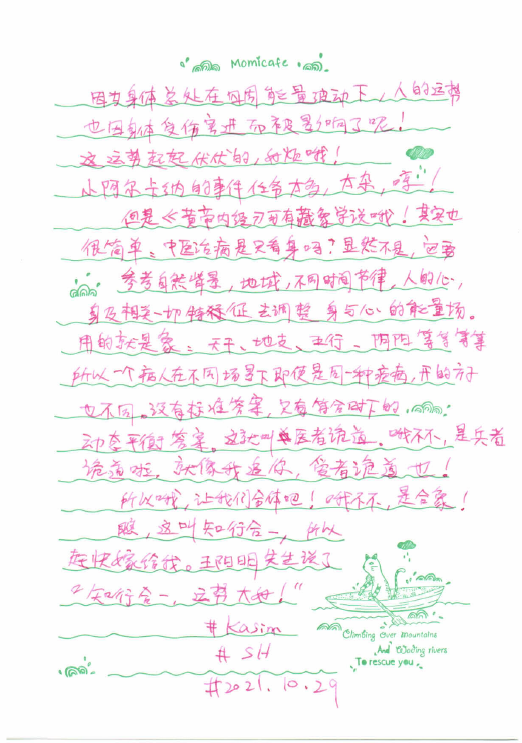 Momicafe
因为身体总处在周围能量波动下,人的运势
也因身体受伤害进而被影响了呢!
这运势起起伏伏的,好烦哦!
小阿尔卡纳的事件任务太多,太杂,哼!
但是《黄帝内经》可有藏象学说哦!其实也
很简单:中医治病是只看身吗?显然不是,它要
参考自然背景,地域,不同时间节律,人的心,
身及相关一切特征去调整身与心的能量场。
用的就是象:天干、地支、五行、阴阳等等等等
所以一个病人在不同场景下即使是同一种疾病,开的方子
也不同。没有标准答案,只有符合时下的
动态平衡答案。这就叫医者诡道。哦不不,是兵者
诡道啦,就像我追你,爱者诡道也!
所以哦,让我们合体吧!哦不不,是合象!
这叫知行合一,所以
在快嫁给我。王阳明先生说了
“知行合一,运势大安!”
# Kasim
# SH
#2021.10.29
Climbing Over Mountains
And Wading rivers
To rescue you